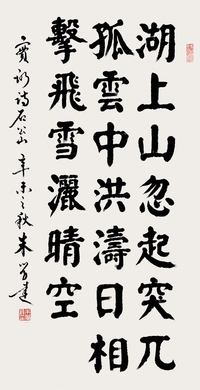 湖上山忽起突兀
孤雲中洪濤日相
擊飛雪灑晴空
詩石公山 辛未之秋 朱學達